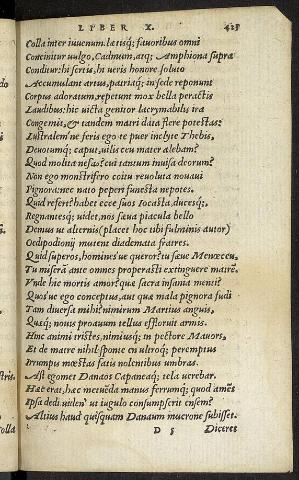 LIBER X. 425
Colla inter iuuenum. lætisq; fauoribus omni
Concinitur uulgo, Cadmum, atq; Amphiona supra
Conditur: hi sertis, hi ueris honore soluto
Accumulant artus, patriaq; in sede reponunt
Corpus adoratum. repetunt mox bella peractis
Laudibus: hic uicta genitor lacrymabilis ira
Congemit, & tandem matri data flere potestas:
Lustralem' ne feris ego te puer inclyte Thebis,
Deuotumq; caput, uilis ceu mater alebam?
Quod molita nefas? cui tantum inuisa deorum?
Non ego monstrifero coitu reuoluta nouaui
Pignora: nec nato peperi funesta nepotes.
Quid refert? habet ecce suos Iocasta, ducesq;,
Regnantesq; uidet. nos sæua piacula bello
Demus ut alternis (placet hoc tibi fulminis autor)
Oedipodionij mutent diademata fratres.
Quid superos, homines ue queror? tu sæue Menœceu,
Tu miserā ante omnes properasti extinguere matrē.
Vnde hic mortis amor? quæ sacra insania menti?
Quos ue ego conceptus, aut quæ mala pignora fudi
Tam diuersa mihi? nimirum Martius anguis,
Quæq; nouis proauum tellus effloruit armis.
Hinc animi tristes, nimiusq; in pectore Mauors,
Et de matre nihil. sponte en ultroq; peremptus
Irrumpis mœstas fatis nolentibus umbras.
Ast egomet Danaos Capaneaq; tela uerebar.
Hæc erat, hæc metuēda manus ferrumq; quod amēs
Ipsa dedi. uiden' ut iugulo consumpserit ensem?
Altius haud quisquam Danaum mucrone subisset.
D 5 Diceret